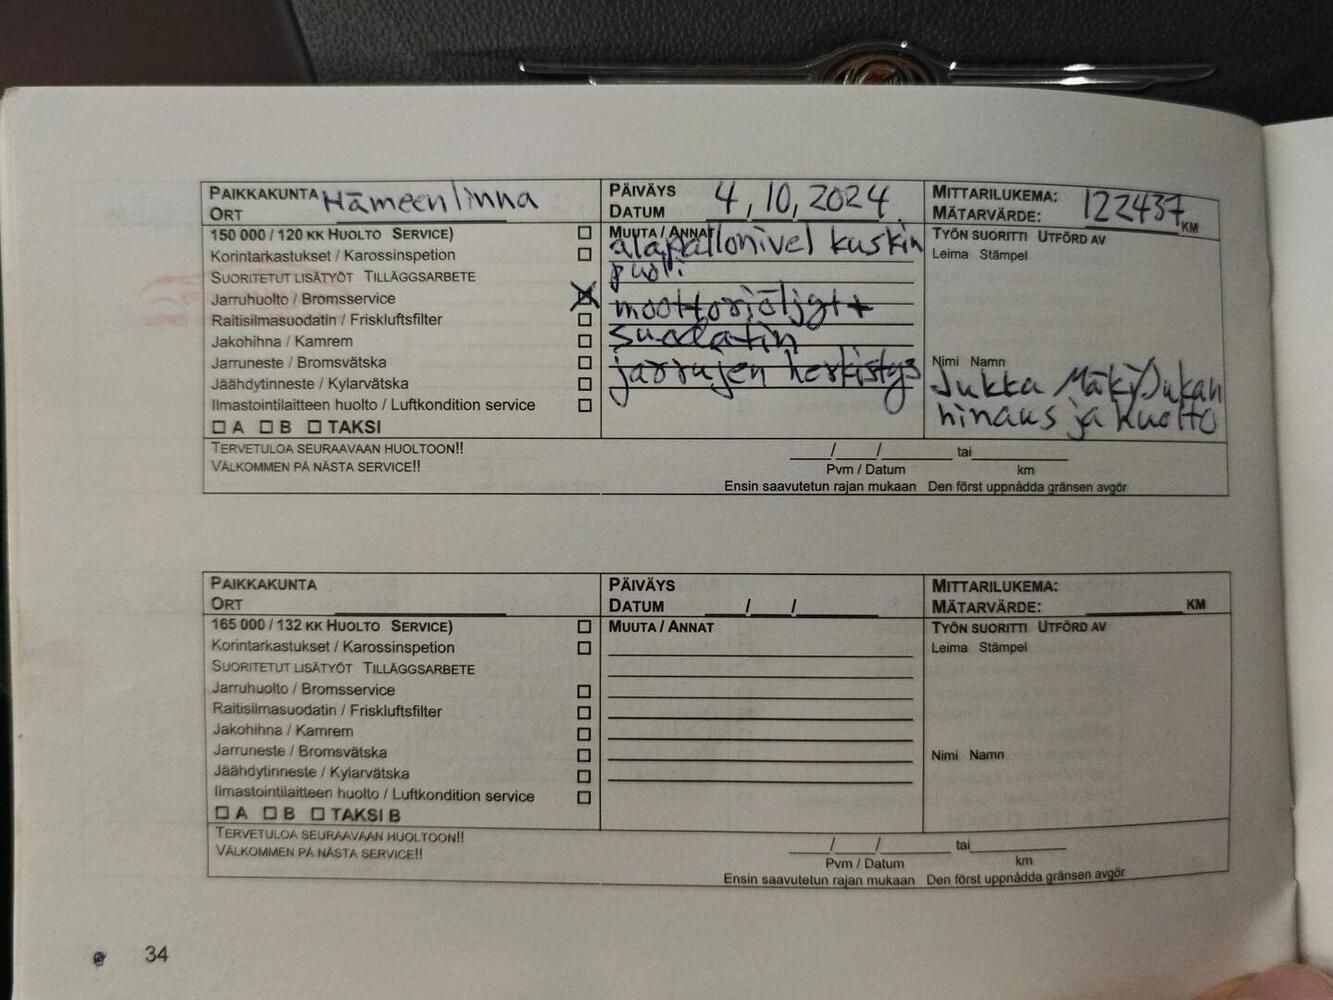 PAIKKAKUNTA Hämeenlinna
ORT
PÄIVÄYS 4, 10, 2024
DATUM
MITTARILUKEMA: 122437
MÄTARVÄRDE: KM
150 000 / 120 KK HUOLTO SERVICE)
Korintarkastukset / Karossinspetion
SUORITETUT LISÄTYÖT TILLÄGGSARBETE
Jarruhuolto / Bromsservice
Raitisilmasuodatin / Friskluftsfilter
Jakohihna / Kamrem
Jarruneste / Bromsvätska
Jäähdytinneste / Kylarvätska
Ilmastointilaitteen huolto / Luftkondition service
A B TAKSI
MUUTA / ANNAT
alapallonivel kuskin
puoli
moottoriöljyt +
suodatin
jarrujen herkistys
TYÖN SUORITTI UTFÖRD AV
Leima Stämpel
Nimi Namn
Jukka Mäki/Jukan
hinaus ja huolto
TERVETULOA SEURAAVAAN HUOLTOON!!
VÄLKOMMEN PÅ NÄSTA SERVICE!!
/ / tai
Pvm / Datum km
Ensin saavutetun rajan mukaan Den först uppnådda gränsen avgör
PAIKKAKUNTA
ORT
PÄIVÄYS
DATUM / /
MITTARILUKEMA:
MÄTARVÄRDE: KM
165 000 / 132 KK HUOLTO SERVICE)
Korintarkastukset / Karossinspetion
SUORITETUT LISÄTYÖT TILLÄGGSARBETE
Jarruhuolto / Bromsservice
Raitisilmasuodatin / Friskluftsfilter
Jakohihna / Kamrem
Jarruneste / Bromsvätska
Jäähdytinneste / Kylarvätska
Ilmastointilaitteen huolto / Luftkondition service
A B TAKSI B
MUUTA / ANNAT
TYÖN SUORITTI UTFÖRD AV
Leima Stämpel
Nimi Namn
TERVETULOA SEURAAVAAN HUOLTOON!!
VÄLKOMMEN PÅ NÄSTA SERVICE!!
/ / tai
Pvm / Datum km
Ensin saavutetun rajan mukaan Den först uppnådda gränsen avgör
34